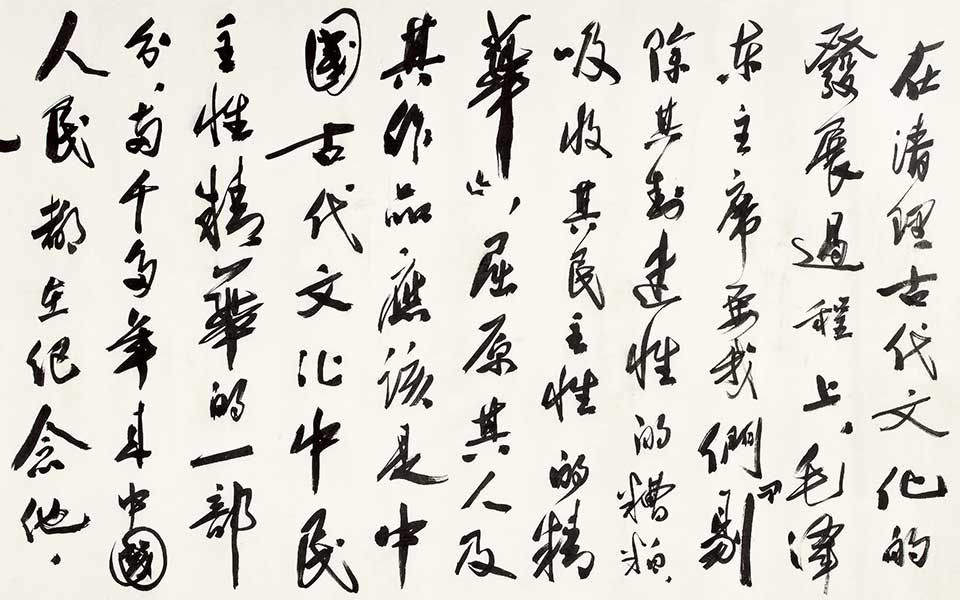 在清理古代文化的
發展過程上，毛澤
东主席要我們剔
除其封建性的糟粕，
吸收其民主性的精
華”，屈原其人及
其作品應該是中
國古代文化中民
主性精華的一部
分，两千多年来中國
人民都在纪念他。